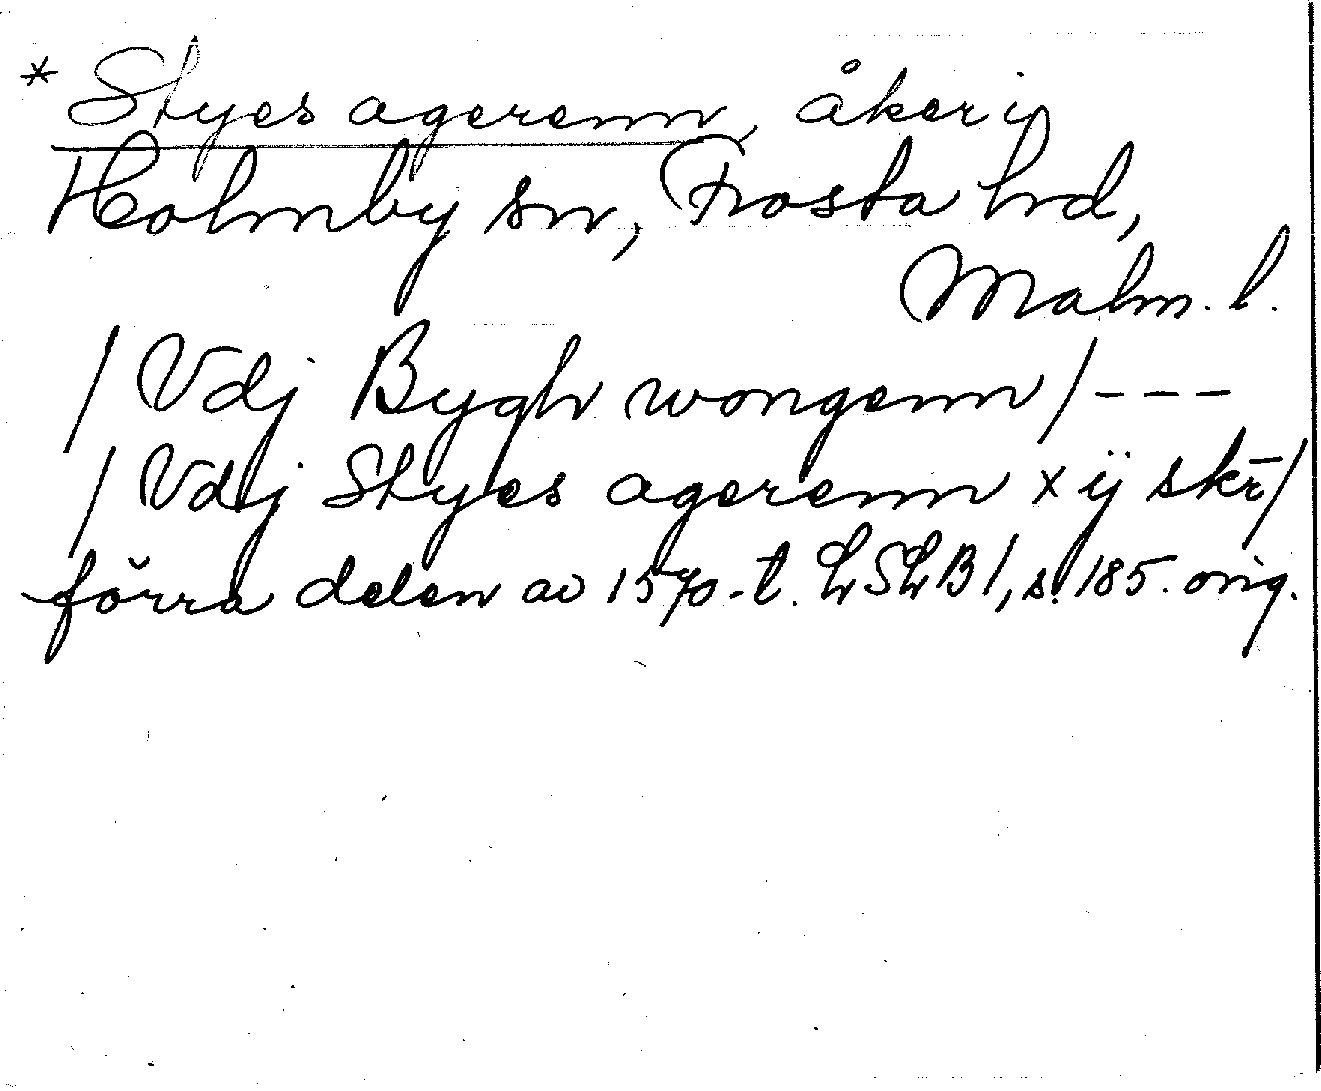 * Styes agerenn, åker i
Holmby sn, Frosta hd,
Malm. l.
/ Vdj Bygh wongenn / ---
/ Vdj Styes agerenn x ij skr̄ /
förra delen av 1570-t. LSLB 1, s. 185. orig.